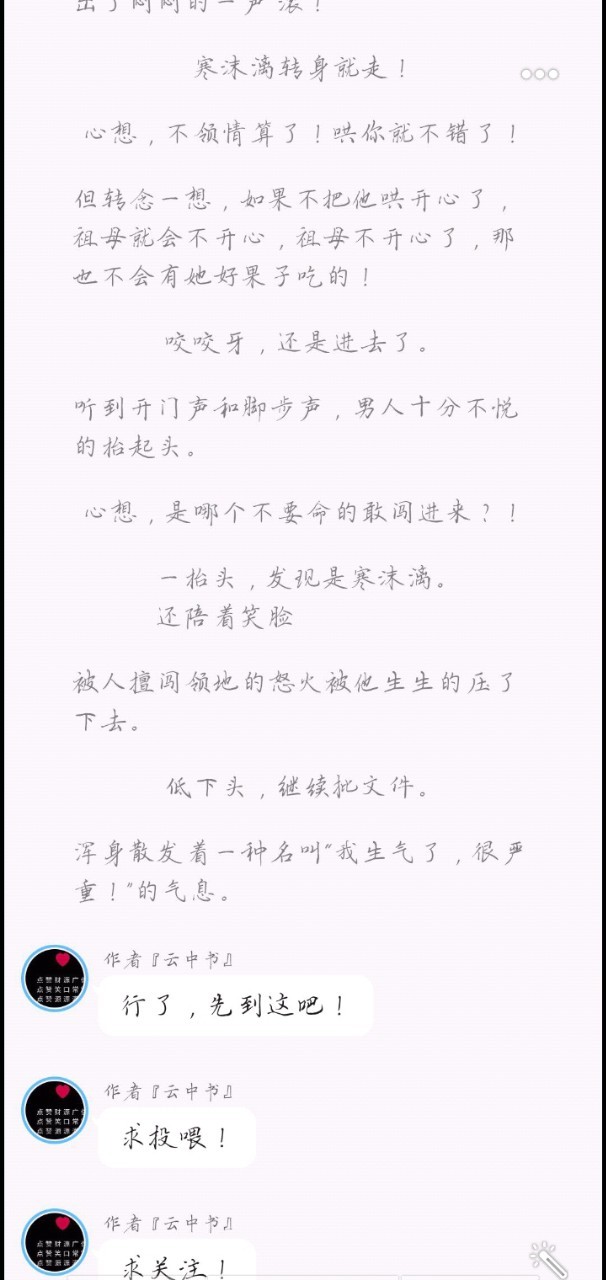 出了闷闷的一声滚！
寒沫漓转身就走！
心想，不领情算了！哄你就不错了！
但转念一想，如果不把他哄开心了，
祖母就会不开心，祖母不开心了，那
也不会有她好果子吃的！
咬咬牙，还是进去了。
听到开门声和脚步声，男人十分不悦
的抬起头。
心想，是哪个不要命的敢闯进来？！
一抬头，发现是寒沫漓。
还陪着笑脸
被人擅闯领地的怒火被他生生的压了
下去。
低下头，继续批文件。
浑身散发着一种名叫“我生气了，很严
重！”的气息。
作者『云中书』
点赞财源广
点赞笑口常
点赞源源
行了，先到这吧！
作者『云中书』
点赞财源广
点赞笑口常
点赞源源
求投喂！
作者『云中书』
点赞财源广
点赞笑口常
点赞源源
求关注！